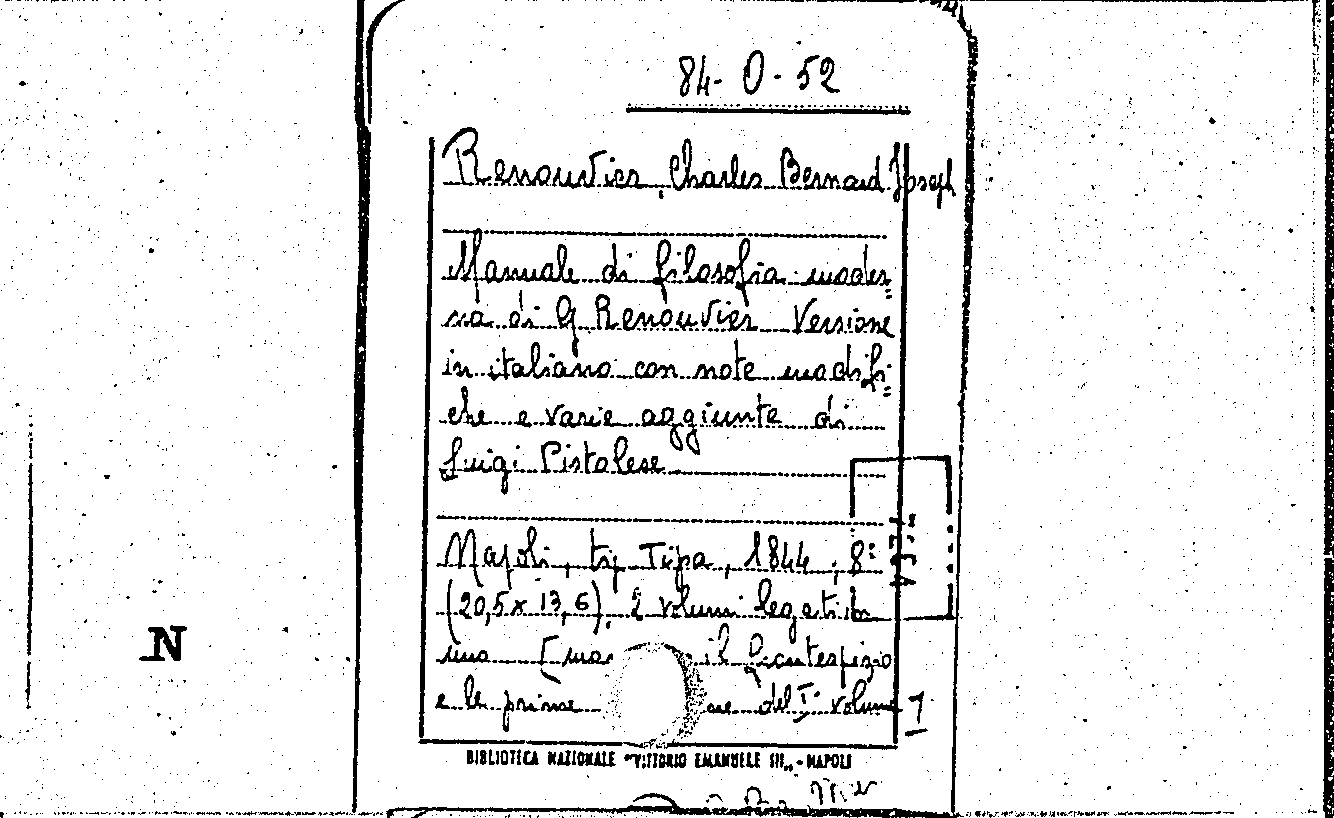 84-O-52
Renouvier, Charles Bernard Joseph
Manuale di filosofia moder=
na di G Renouvier Versione
in italiano con note modifi=
che e varie aggiunte di
Luigi Pistolese
Napoli, tip. Tipa, 1844, 8°
(20,5 x 13,6), 2 volumi legati in
uno il frontespizio
e le prime del I° volume]
N
BIBLIOTECA NAZIONALE "VITTORIO EMANUELE III„ - NAPOLI